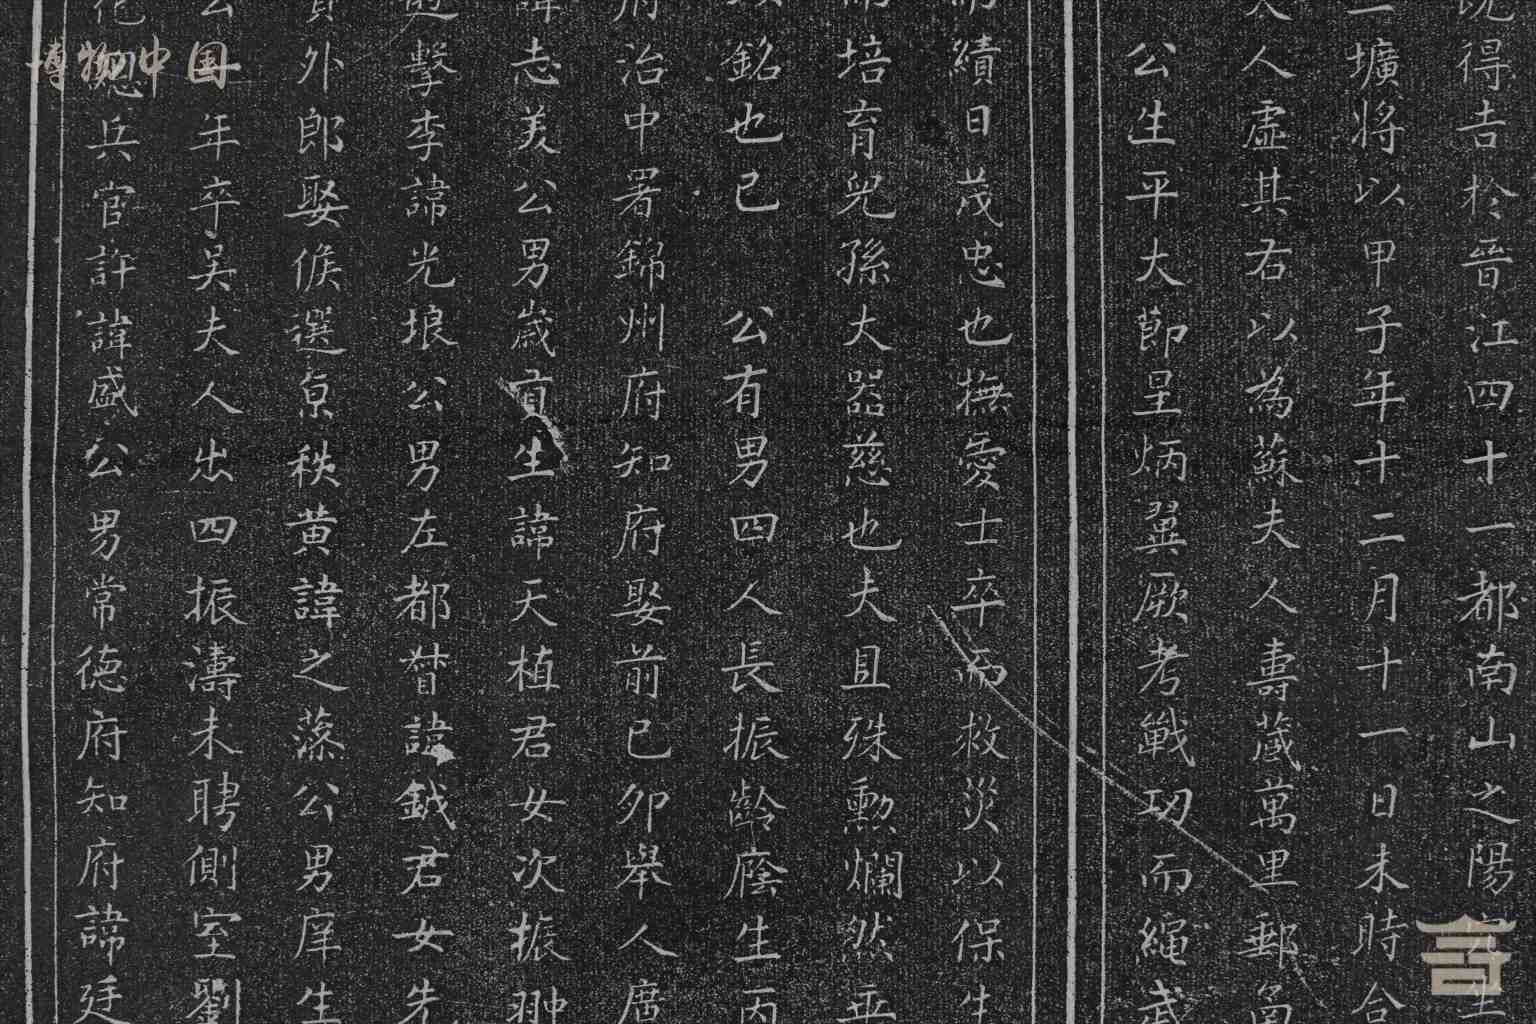 得吉於晉江四十一都南山之陽
壙將以甲子年十二月十一日未時合
人虛其右以為蘇夫人壽藏萬里郵
公生平大節星炳翼厥考戰功而繩武
績日茂忠也撫愛士卒而救災以保生
培育兒孫大器慈也夫且殊勳爛然
銘也已 公有男四人長振齡廕生丙
治中署錦州府知府娶前己卯舉人廣
志美公男歲貢生諱天植君女次振翀
擊李諱光埌公男左都督諱鉞君女先
外郎娶候選京秩黃諱之藻公男庠生
年卒吳夫人出四振濤未聘側室劉
總兵官許諱盛公男常德府知府諱廷
博物中国